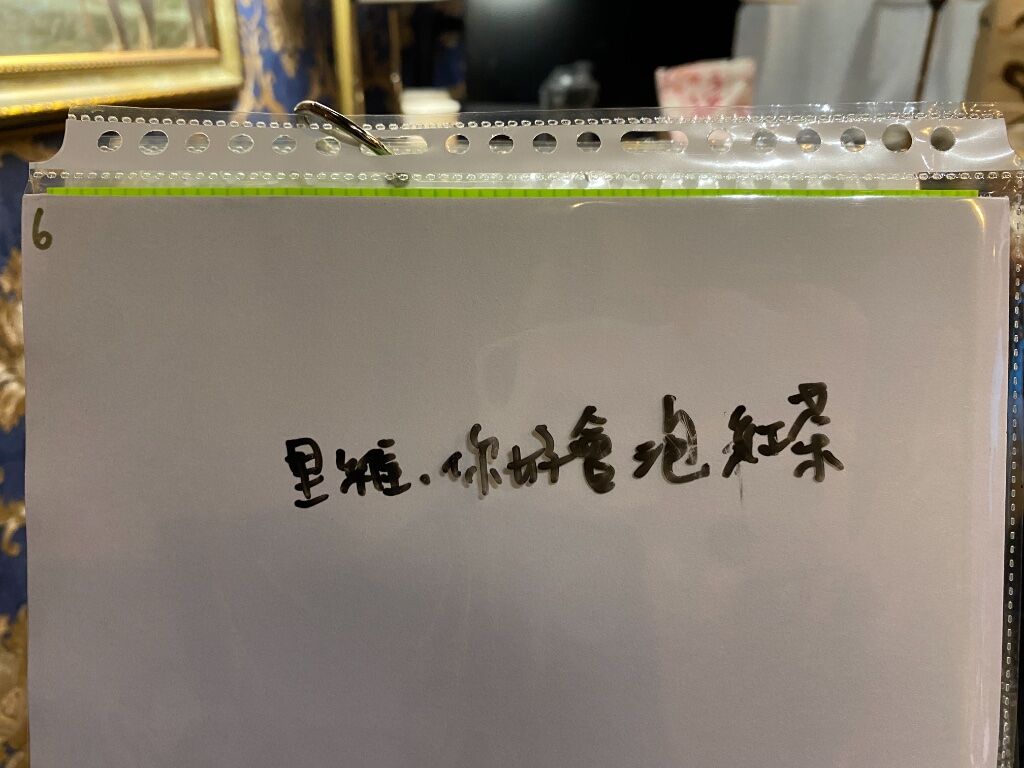 6
里雅.你好會泡紅茶